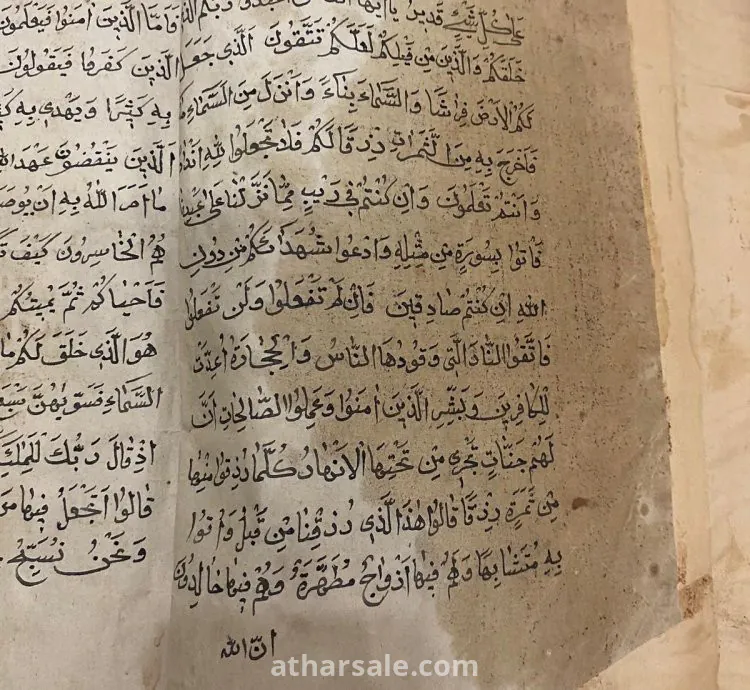 على كل شئ قدير يا ايها الناس اعبدوا ربكم
خَلَقَكُمْ وَالَّذِينَ مِن قَبْلِكُمْ لَعَلَّكُمْ تَتَّقُونَ الَّذِي جَعَلَ
لَكُمُ الْاَرْضَ فِرَاشًا وَالسَّمَاءَ بِنَاءً وَاَنْزَلَ مِنَ السَّمَاءِ
فَاَخْرَجَ بِهِ مِنَ الثَّمَرَاتِ رِزْقًا لَكُمْ فَلَا تَجْعَلُوا لِلّٰهِ
وَاَنْتُمْ تَعْلَمُونَ وَاِنْ كُنْتُمْ فِي رَيْبٍ مِمَّا نَزَّلْنَا عَلٰى عَبْدِنَا
فَاتُوا بِسُورَةٍ مِنْ مِثْلِهِ وَادْعُوا شُهَدَاءَكُمْ مِنْ دُونِ
اللّٰهِ اِنْ كُنْتُمْ صَادِقِينَ فَاِنْ لَمْ تَفْعَلُوا وَلَنْ تَفْعَلُوا
فَاتَّقُوا النَّارَ الَّتِي وَقُودُهَا النَّاسُ وَالْحِجَارَةُ اُعِدَّتْ
لِلْكَافِرِينَ وَبَشِّرِ الَّذِينَ اٰمَنُوا وَعَمِلُوا الصَّالِحَاتِ اَنَّ
لَهُمْ جَنَّاتٍ تَجْرِي مِنْ تَحْتِهَا الْاَنْهَارُ كُلَّمَا رُزِقُوا مِنْهَا
مِنْ ثَمَرَةٍ رِزْقًا قَالُوا هٰذَا الَّذِي رُزِقْنَا مِنْ قَبْلُ وَاُتُوا
بِهِ مُتَشَابِهًا وَلَهُمْ فِيهَا اَزْوَاجٌ مُطَهَّرَةٌ وَهُمْ فِيهَا خَالِدُونَ
اِنَّ اللّٰه
فَاَمَّا الَّذِينَ اٰمَنُوا فَيَعْلَمُونَ
الَّذِينَ كَفَرُوا فَيَقُولُونَ
بِهِ كَثِيرًا وَيَهْدِي بِهِ
الَّذِينَ يَنْقُضُونَ عَهْدَ
مَا اَمَرَ اللّٰهُ بِهِ اَنْ
هُمُ الْخَاسِرُونَ كَيْفَ
فَاَحْيَاكُمْ ثُمَّ يُمِيتُكُمْ
هُوَ الَّذِي خَلَقَ لَكُمْ مَا
السَّمَاءِ فَسَوّٰيهُنَّ سَبْعَ
اِذْ قَالَ رَبُّكَ
قَالُوا اَتَجْعَلُ فِيهَا
وَنَحْنُ نُسَبِّحُ
atharsale.com